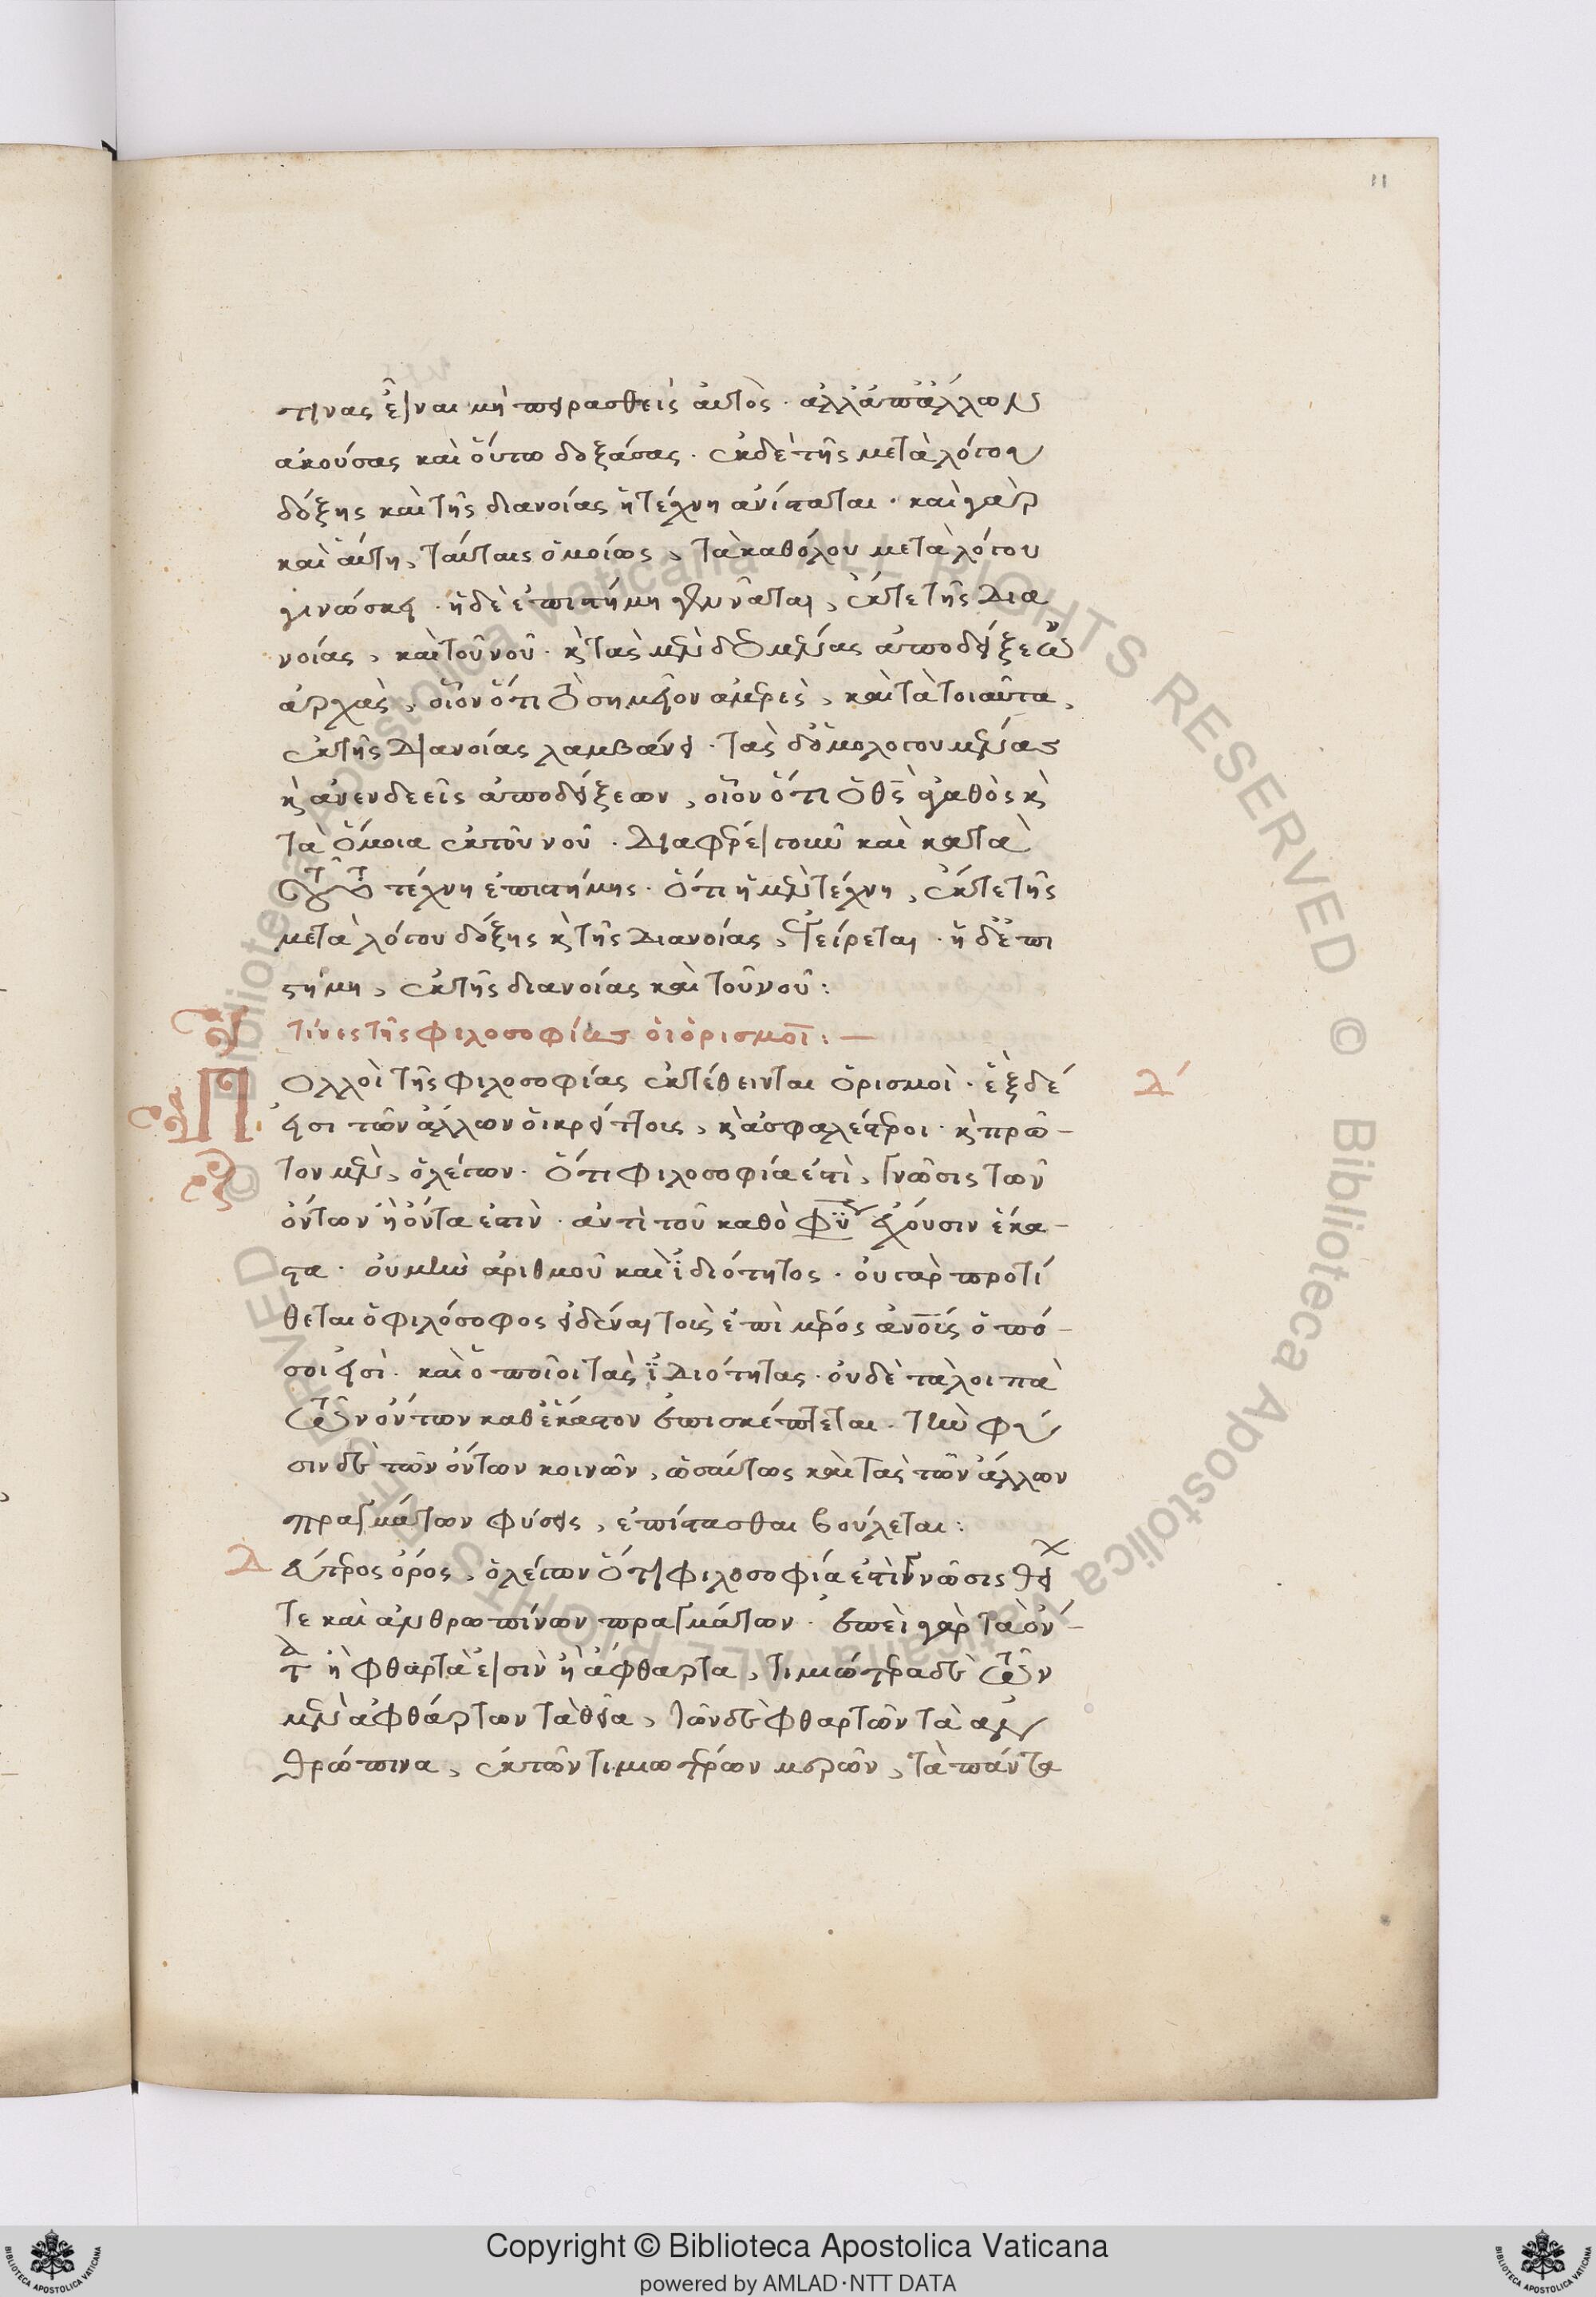 11
τινας εἶναι μὴ πειρασθεὶς αὐτὸς· ἀλλ' ἀπ' ἄλλων
ἀκούσας καὶ οὕτω δοξάσας· ἐκ δὲ τῆς μετὰ λόγου
δόξης καὶ τῆς διανοίας ἡ τέχνη ἀνίσταται· καὶ γὰρ
καὶ αὕτη, ταύταις ὁμοίως, τὰ καθόλου μετὰ λόγου
γινώσκει· ἡ δὲ ἐπιστήμη γεννᾶται, ἔκ τε τῆς δια
νοίας, καὶ τοῦ νοῦ· κ τὰς μὲν δεομένας ἀποδείξεων
ἀρχὰς, οἷον ὅτι τὸ σημεῖον ἀμερὲς, καὶ τὰ τοιαῦτα,
ἐκ τῆς διανοίας λαμβάνει· τὰς δ' ὁμολογουμένας
κ ἀνενδεεῖς ἀποδείξεων, οἷον ὅτι ὁ θς ἀγαθὸς κ
τὰ ὅμοια ἐκ τοῦ νοῦ· διαφέρει γοῦν καὶ κατὰ
τοῦτο τέχνη ἐπιστήμης· ὅτι ἡ μὲν τέχνη, ἔκ τε τῆς
μετὰ λόγου δόξης κ τῆς διανοίας, ἐγείρεται· ἡ δ' ἐπι
στήμη, ἐκ τῆς διανοίας καὶ τοῦ νοῦ:
τίνες τῆς φιλοσοφίας οἱ ὁρισμοί:—
Πολλοὶ τῆς φιλοσοφίας ἐκτέθεινται ὁρισμοὶ· ἓξ δέ
Δ΄
εἰσι τῶν ἄλλων οἱ κρείττοις, κ ἀσφαλέστεροι· κ πρῶ-
τον μὲν, ὁ λέγων· ὅτι φιλοσοφία ἐστὶ, γνῶσις τῶν
ὄντων ἢ ὄντα ἐστὶν· ἀντὶ τοῦ καθὸ φύσεως ἔχουσιν ἕκα-
στα· οὐ μὴν ἀριθμοῦ καὶ ἰδιότητος· οὐ γὰρ προτί
θεται ὁ φιλόσοφος εἰδέναι τοὺς ἐπὶ μέρος ἀνους ὁπό-
σοι εἰσὶ· καὶ ὁποῖοι τὰς ἰδιότητας· οὐδὲ τὰ λοιπὰ
τῶν ὄντων καθ' ἕκαστον ἐπισκέπτεται· τὴν φύ
σιν δὲ τῶν ὄντων κοινῶν, ὡσαύτως καὶ τὰς τῶν ἄλλων
πραγμάτων φύσεις, ἐπίστασθαι βούλεται:
Δεύτερος ὅρος, ὁ λέγων ὅτι φιλοσοφία ἐστὶ γνῶσις θείων
τε καὶ ἀνθρωπίνων πραγμάτων· ἐπεὶ γὰρ τὰ ὄν-
τα ἢ φθαρτὰ εἰσὶν ἢ ἄφθαρτα, τιμιώτερα δὲ τῶν
μὲν ἀφθάρτων τὰ θεῖα, τῶν δὲ φθαρτῶν τὰ ἀν
θρώπινα, ἐκ τῶν τιμιωτέρων μερῶν, τὰ πάντα
Copyright © Biblioteca Apostolica Vaticana
powered by AMLAD·NTT DATA
© Biblioteca Apostolica Vaticana ALL RIGHTS RESERVED © Biblioteca Apostolica Vaticana ALL RIGHTS RESERVED
BIBLIOTECA APOSTOLICA VATICANA
BIBLIOTECA APOSTOLICA VATICANA